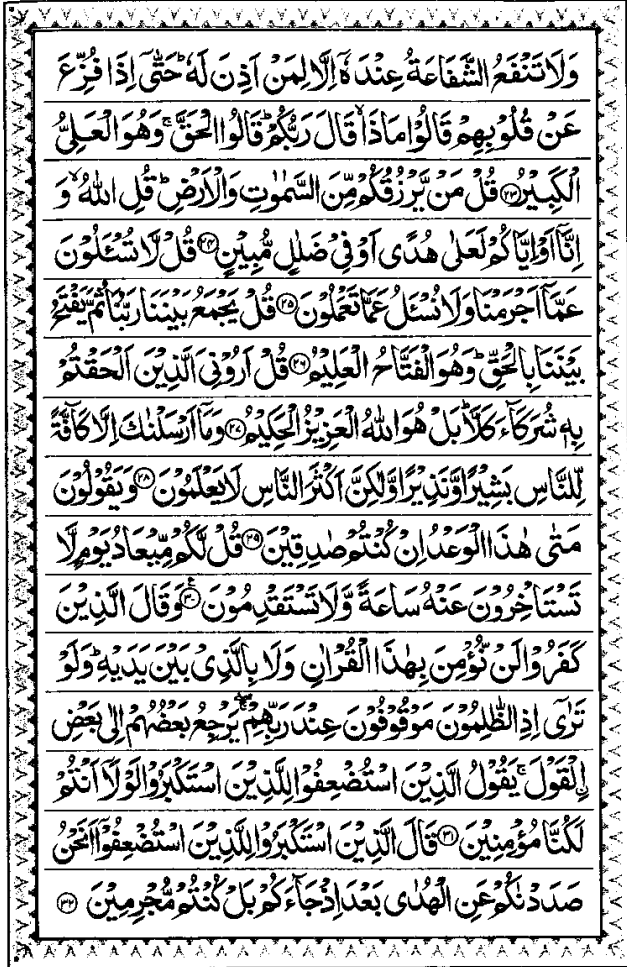 وَلَا تَنْفَعُ الشَّفَاعَةُ عِنْدَهٗۤ اِلَّا لِمَنْ اَذِنَ لَهٗ ؕ حَتّٰۤى اِذَا فُزِّعَ
عَنْ قُلُوْبِهِمْ قَالُوْا مَاذَا ۙ قَالَ رَبُّكُمْ ؕ قَالُوا الْحَقَّ ۚ وَهُوَ الْعَلِىُّ
الْكَبِيْرُ ﴿۲۳﴾ قُلْ مَنْ يَّرْزُقُكُمْ مِّنَ السَّمٰوٰتِ وَالْاَرْضِ ؕ قُلِ اللّٰهُ ۙ وَ
اِنَّاۤ اَوْ اِيَّاكُمْ لَعَلٰى هُدًى اَوْ فِىْ ضَلٰلٍ مُّبِيْنٍ ﴿۲۴﴾ قُلْ لَّا تُسْـَٔلُوْنَ
عَمَّاۤ اَجْرَمْنَا وَلَا نُسْـَٔلُ عَمَّا تَعْمَلُوْنَ ﴿۲۵﴾ قُلْ يَجْمَعُ بَيْنَنَا رَبُّنَا ثُمَّ يَفْتَحُ
بَيْنَنَا بِالْحَقِّ ؕ وَهُوَ الْفَتَّاحُ الْعَلِيْمُ ﴿۲۶﴾ قُلْ اَرُوْنِىَ الَّذِيْنَ اَلْحَقْتُمْ
بِهٖ شُرَكَآءَ كَلَّا ؕ بَلْ هُوَ اللّٰهُ الْعَزِيْزُ الْحَكِيْمُ ﴿۲۷﴾ وَمَاۤ اَرْسَلْنٰكَ اِلَّا كَآفَّةً
لِّلنَّاسِ بَشِيْرًا وَّنَذِيْرًا وَّلٰكِنَّ اَكْثَرَ النَّاسِ لَا يَعْلَمُوْنَ ﴿۲۸﴾ وَيَقُوْلُوْنَ
مَتٰى هٰذَا الْوَعْدُ اِنْ كُنْتُمْ صٰدِقِيْنَ ﴿۲۹﴾ قُلْ لَّكُمْ مِّيْعَادُ يَوْمٍ لَّا
تَسْتَاْخِرُوْنَ عَنْهُ سَاعَةً وَّلَا تَسْتَقْدِمُوْنَ ﴿۳۰﴾ ع وَقَالَ الَّذِيْنَ
كَفَرُوْا لَنْ نُّؤْمِنَ بِهٰذَا الْقُرْاٰنِ وَلَا بِالَّذِىْ بَيْنَ يَدَيْهِ ؕ وَلَوْ
تَرٰٓى اِذِ الظّٰلِمُوْنَ مَوْقُوْفُوْنَ عِنْدَ رَبِّهِمْ ۖۚ يَرْجِعُ بَعْضُهُمْ اِلٰى بَعْضِ
اِۨلْقَوْلَ ۚ يَقُوْلُ الَّذِيْنَ اسْتُضْعِفُوْا لِلَّذِيْنَ اسْتَكْبَرُوْا لَوْلَاۤ اَنْتُمْ
لَكُنَّا مُؤْمِنِيْنَ ﴿۳۱﴾ قَالَ الَّذِيْنَ اسْتَكْبَرُوْا لِلَّذِيْنَ اسْتُضْعِفُوْۤا اَنَحْنُ
صَدَدْنٰكُمْ عَنِ الْهُدٰى بَعْدَ اِذْ جَآءَكُمْ بَلْ كُنْتُمْ مُّجْرِمِيْنَ ﴿۳۲﴾